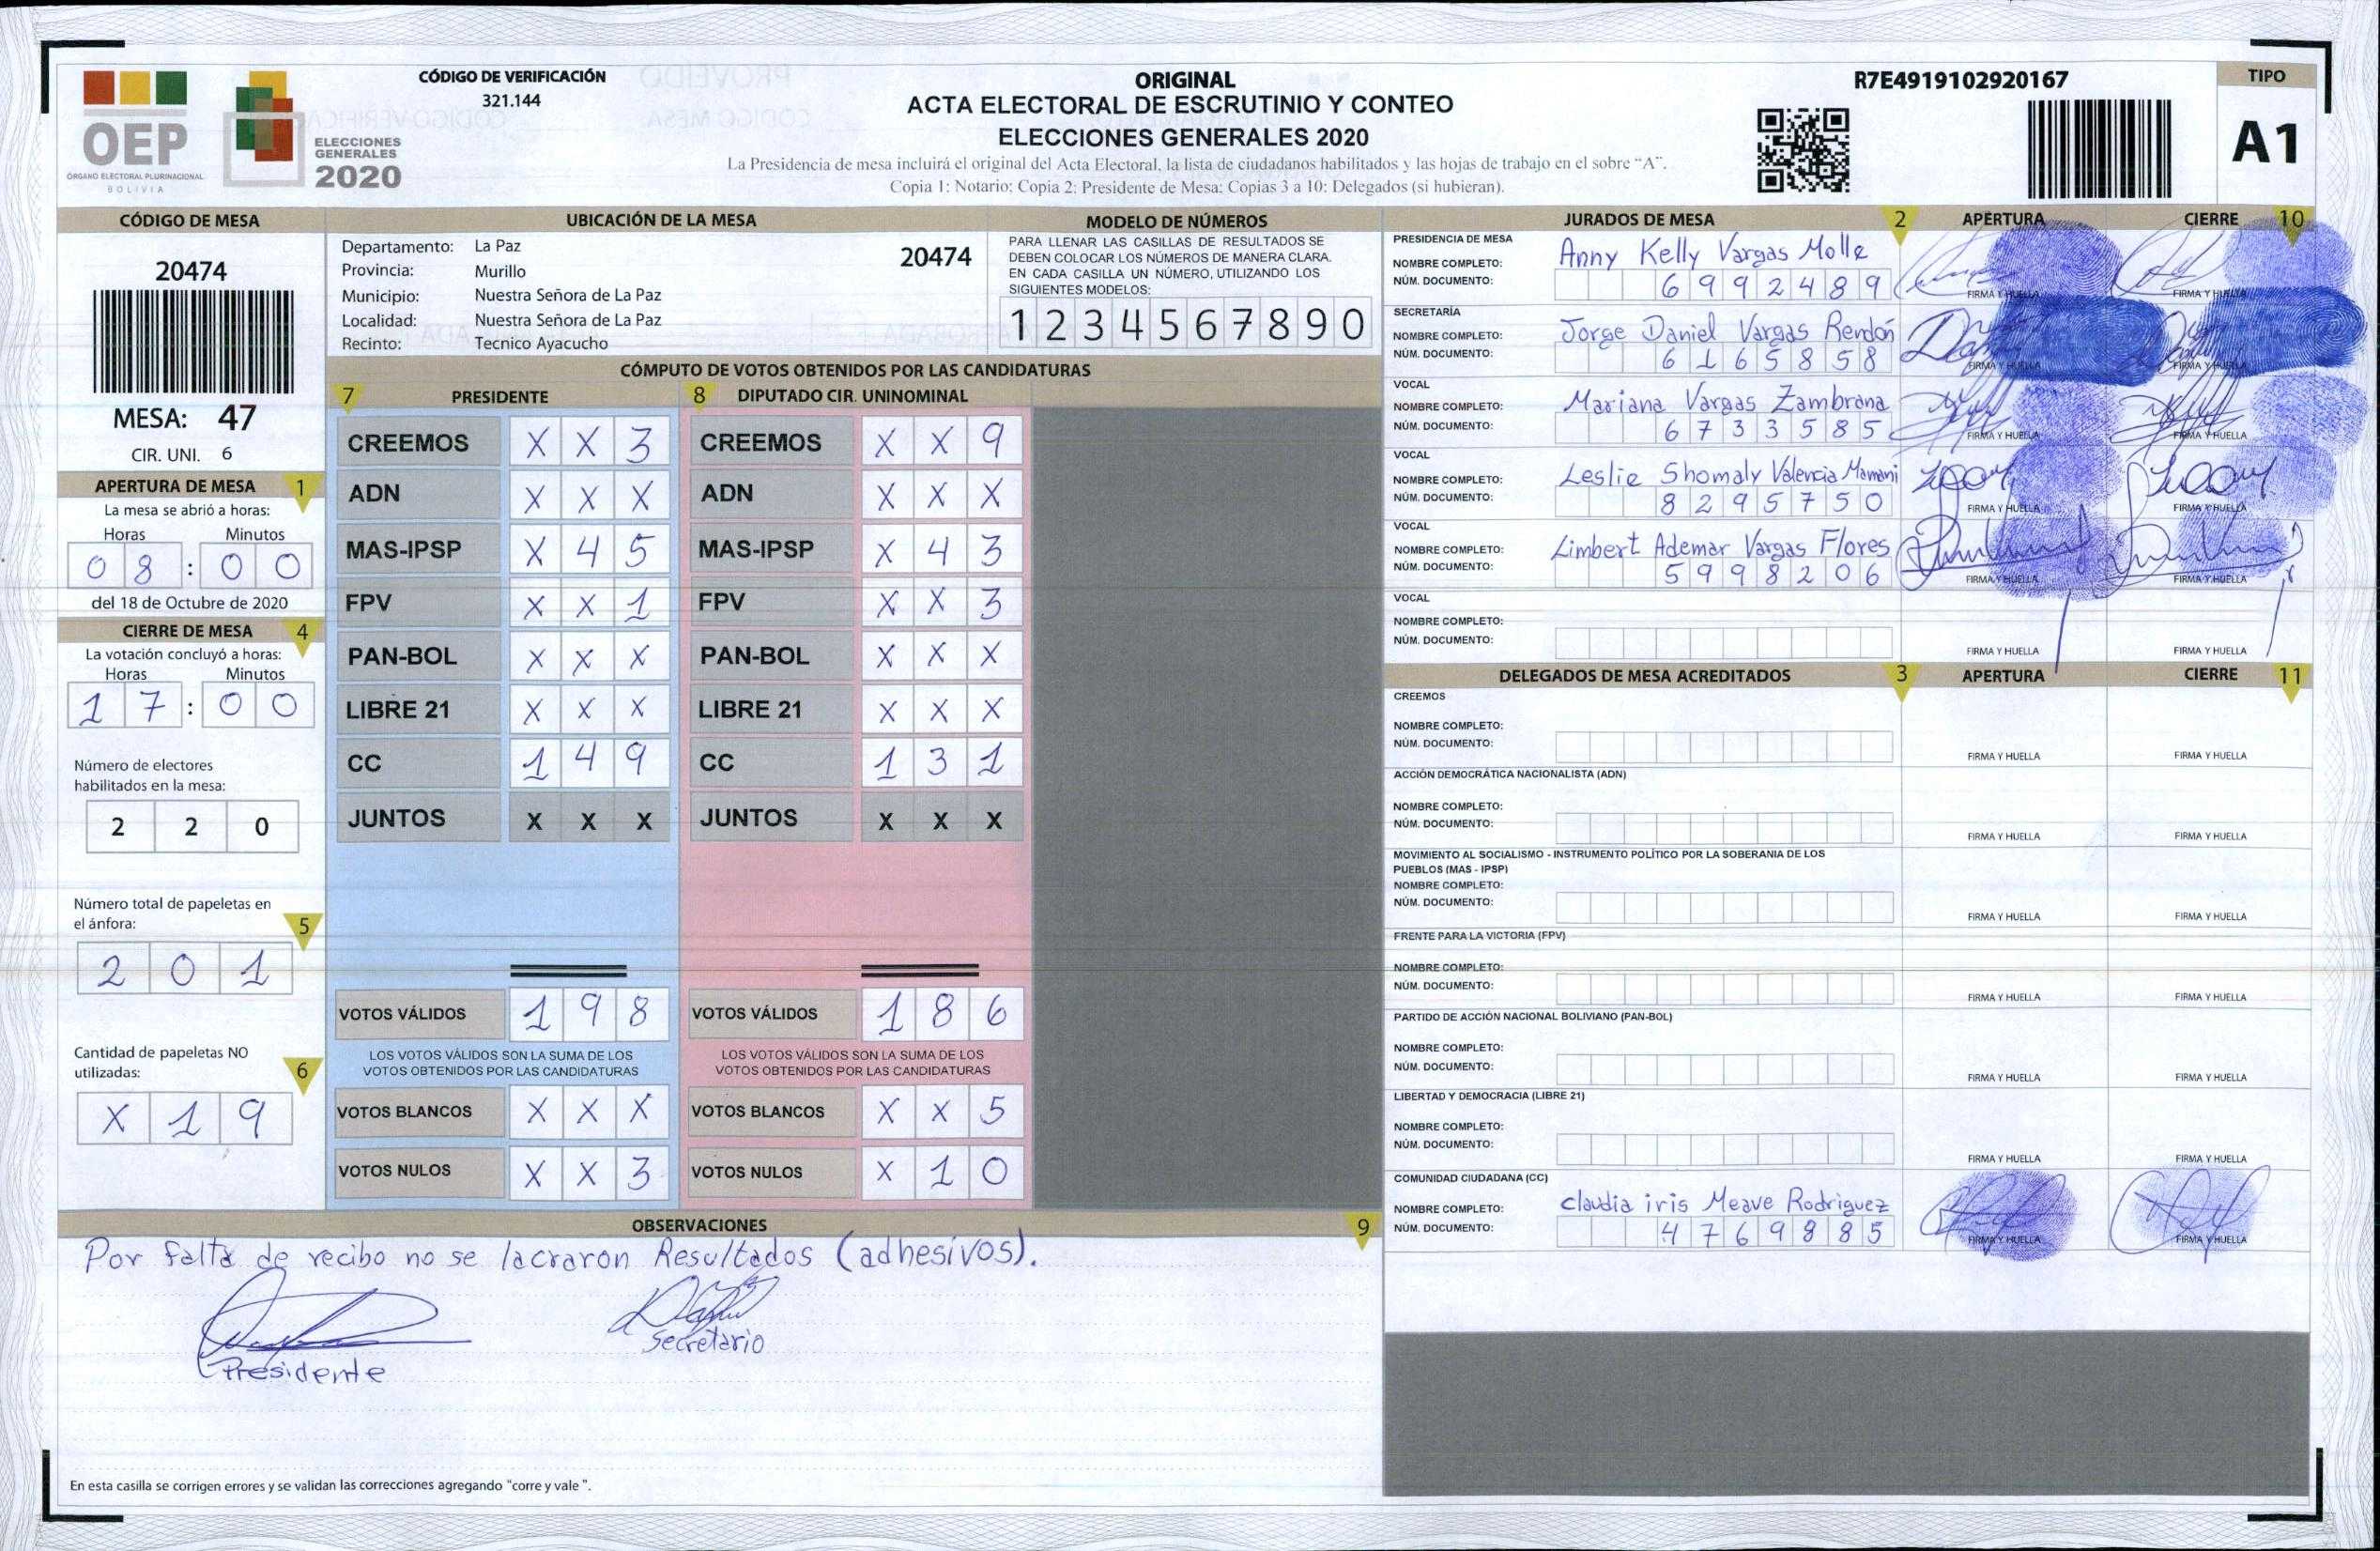 OEP
ÓRGANO ELECTORAL PLURINACIONAL
BOLIVIA
ELECCIONES
GENERALES
2020
CÓDIGO DE VERIFICACIÓN
321.144
ORIGINAL
ACTA ELECTORAL DE ESCRUTINIO Y CONTEO
ELECCIONES GENERALES 2020
La Presidencia de mesa incluirá el original del Acta Electoral, la lista de ciudadanos habilitados y las hojas de trabajo en el sobre “A”.
Copia 1: Notario; Copia 2: Presidente de Mesa; Copias 3 a 10: Delegados (si hubieran).
R7E4919102920167
TIPO
A1
CÓDIGO DE MESA
20474
MESA: 47
CIR. UNI. 6
APERTURA DE MESA 1
La mesa se abrió a horas:
Horas Minutos
0 8 : 0 0
del 18 de Octubre de 2020
CIERRE DE MESA 4
La votación concluyó a horas:
Horas Minutos
1 7 : 0 0
Número de electores
habilitados en la mesa:
2 2 0
Número total de papeletas en
el ánfora: 5
2 0 1
Cantidad de papeletas NO
utilizadas: 6
X 1 9
UBICACIÓN DE LA MESA
Departamento: La Paz
20474
Provincia: Murillo
Municipio: Nuestra Señora de La Paz
Localidad: Nuestra Señora de La Paz
Recinto: Tecnico Ayacucho
MODELO DE NÚMEROS
PARA LLENAR LAS CASILLAS DE RESULTADOS SE
DEBEN COLOCAR LOS NÚMEROS DE MANERA CLARA.
EN CADA CASILLA UN NÚMERO, UTILIZANDO LOS
SIGUIENTES MODELOS:
1 2 3 4 5 6 7 8 9 0
CÓMPUTO DE VOTOS OBTENIDOS POR LAS CANDIDATURAS
7 PRESIDENTE 8 DIPUTADO CIR. UNINOMINAL
CREEMOS X X 3 CREEMOS X X 9
ADN X X X ADN X X X
MAS-IPSP X 4 5 MAS-IPSP X 4 3
FPV X X 1 FPV X X 3
PAN-BOL X X X PAN-BOL X X X
LIBRE 21 X X X LIBRE 21 X X X
CC 1 4 9 CC 1 3 1
JUNTOS X X X JUNTOS X X X
VOTOS VÁLIDOS 1 9 8 VOTOS VÁLIDOS 1 8 6
LOS VOTOS VÁLIDOS SON LA SUMA DE LOS LOS VOTOS VÁLIDOS SON LA SUMA DE LOS
VOTOS OBTENIDOS POR LAS CANDIDATURAS VOTOS OBTENIDOS POR LAS CANDIDATURAS
VOTOS BLANCOS X X X VOTOS BLANCOS X X 5
VOTOS NULOS X X 3 VOTOS NULOS X 1 0
OBSERVACIONES 9
Por falta de recibo no se lacraron Resultados (adhesivos).
Presidente
Secretario
En esta casilla se corrigen errores y se validan las correcciones agregando “corre y vale”.
JURADOS DE MESA 2 APERTURA CIERRE 10
PRESIDENCIA DE MESA
NOMBRE COMPLETO: Anny Kelly Vargas Molle
NÚM. DOCUMENTO: 6 9 9 2 4 8 9
FIRMA Y HUELLA FIRMA Y HUELLA
SECRETARÍA
NOMBRE COMPLETO: Jorge Daniel Vargas Rendón
NÚM. DOCUMENTO: 6 1 6 5 8 5 8
FIRMA Y HUELLA FIRMA Y HUELLA
VOCAL
NOMBRE COMPLETO: Mariana Vargas Zambrana
NÚM. DOCUMENTO: 6 7 3 3 5 8 5
FIRMA Y HUELLA FIRMA Y HUELLA
VOCAL
NOMBRE COMPLETO: Leslie Shomaly Valencia Mamani
NÚM. DOCUMENTO: 8 2 9 5 7 5 0
FIRMA Y HUELLA FIRMA Y HUELLA
VOCAL
NOMBRE COMPLETO: Limbert Ademar Vargas Flores
NÚM. DOCUMENTO: 5 9 9 8 2 0 6
FIRMA Y HUELLA FIRMA Y HUELLA
VOCAL
NOMBRE COMPLETO:
NÚM. DOCUMENTO:
FIRMA Y HUELLA FIRMA Y HUELLA
DELEGADOS DE MESA ACREDITADOS 3 APERTURA CIERRE 11
CREEMOS
NOMBRE COMPLETO:
NÚM. DOCUMENTO:
FIRMA Y HUELLA FIRMA Y HUELLA
ACCIÓN DEMOCRÁTICA NACIONALISTA (ADN)
NOMBRE COMPLETO:
NÚM. DOCUMENTO:
FIRMA Y HUELLA FIRMA Y HUELLA
MOVIMIENTO AL SOCIALISMO - INSTRUMENTO POLÍTICO POR LA SOBERANIA DE LOS
PUEBLOS (MAS - IPSP)
NOMBRE COMPLETO:
NÚM. DOCUMENTO:
FIRMA Y HUELLA FIRMA Y HUELLA
FRENTE PARA LA VICTORIA (FPV)
NOMBRE COMPLETO:
NÚM. DOCUMENTO:
FIRMA Y HUELLA FIRMA Y HUELLA
PARTIDO DE ACCIÓN NACIONAL BOLIVIANO (PAN-BOL)
NOMBRE COMPLETO:
NÚM. DOCUMENTO:
FIRMA Y HUELLA FIRMA Y HUELLA
LIBERTAD Y DEMOCRACIA (LIBRE 21)
NOMBRE COMPLETO:
NÚM. DOCUMENTO:
FIRMA Y HUELLA FIRMA Y HUELLA
COMUNIDAD CIUDADANA (CC)
NOMBRE COMPLETO: Claudia iris Meave Rodriguez
NÚM. DOCUMENTO: 4 7 6 9 8 8 5
FIRMA Y HUELLA FIRMA Y HUELLA